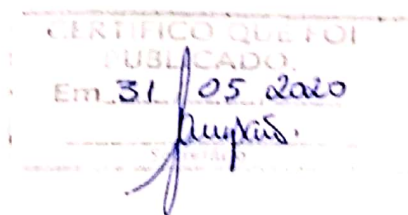 CERTIFICO QUE FOI
PUBLICADO.
Em 31 05 2020